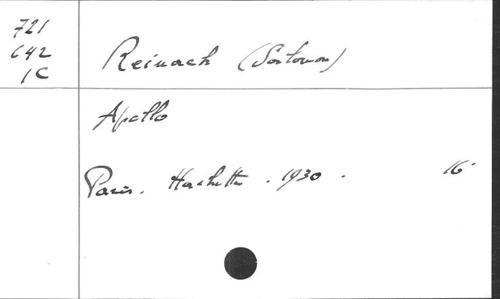 721
642
1C
Reinach (Salomon)
Apollo
Paris. Hachette. 1930. 16°